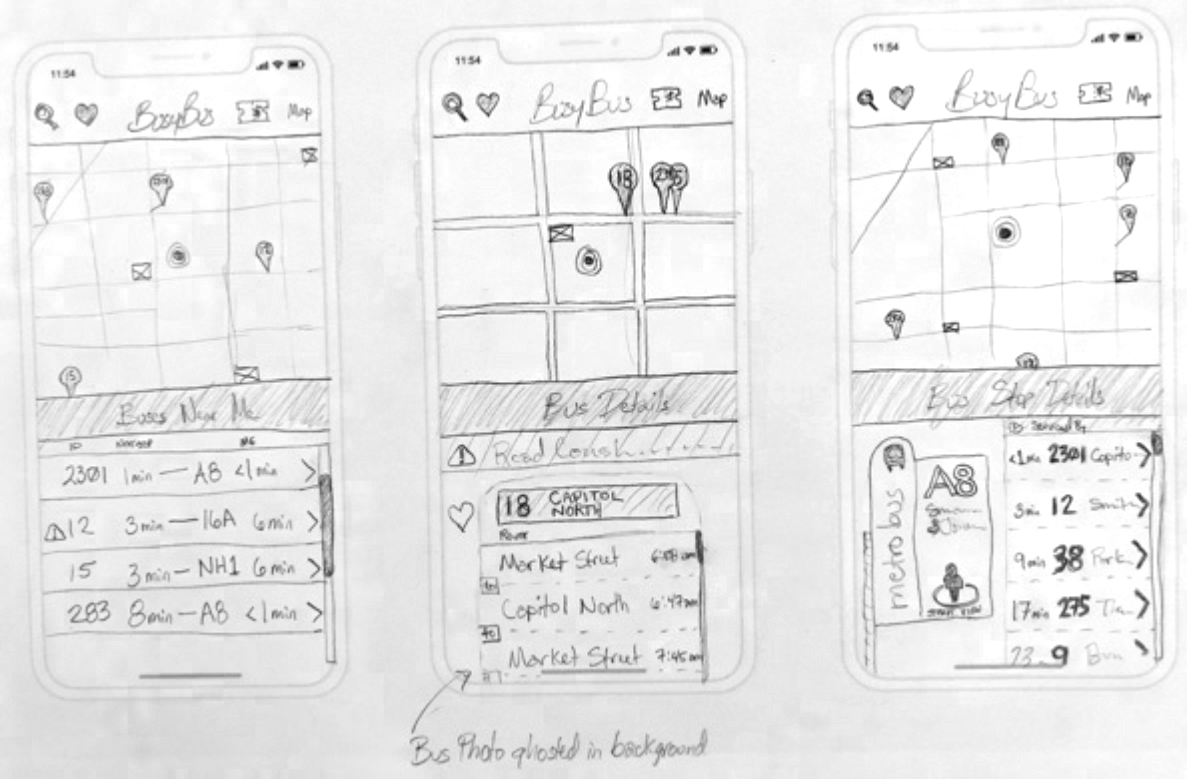 11:54
BusyBus
Map
18
Buses Near Me
ID
2301 1min — A8 <1min >
12 3min — 16A 6min >
15 3min — NH1 6min >
283 8min — A8 <1min >
11:54
BusyBus
Map
18
Bus Details
18 CAPITOL
NORTH
Market Street
to
Capitol North 6:47am
to
Market Street 7:45am
Bus Photo ghosted in background
11:54
BusyBus
Map
Bus Stop Details
Serviced By
metrobus
A8
STREET VIEW
<1min 2301 Capito
3min 12 Smit
9min 38 Park
17min 275
23 9